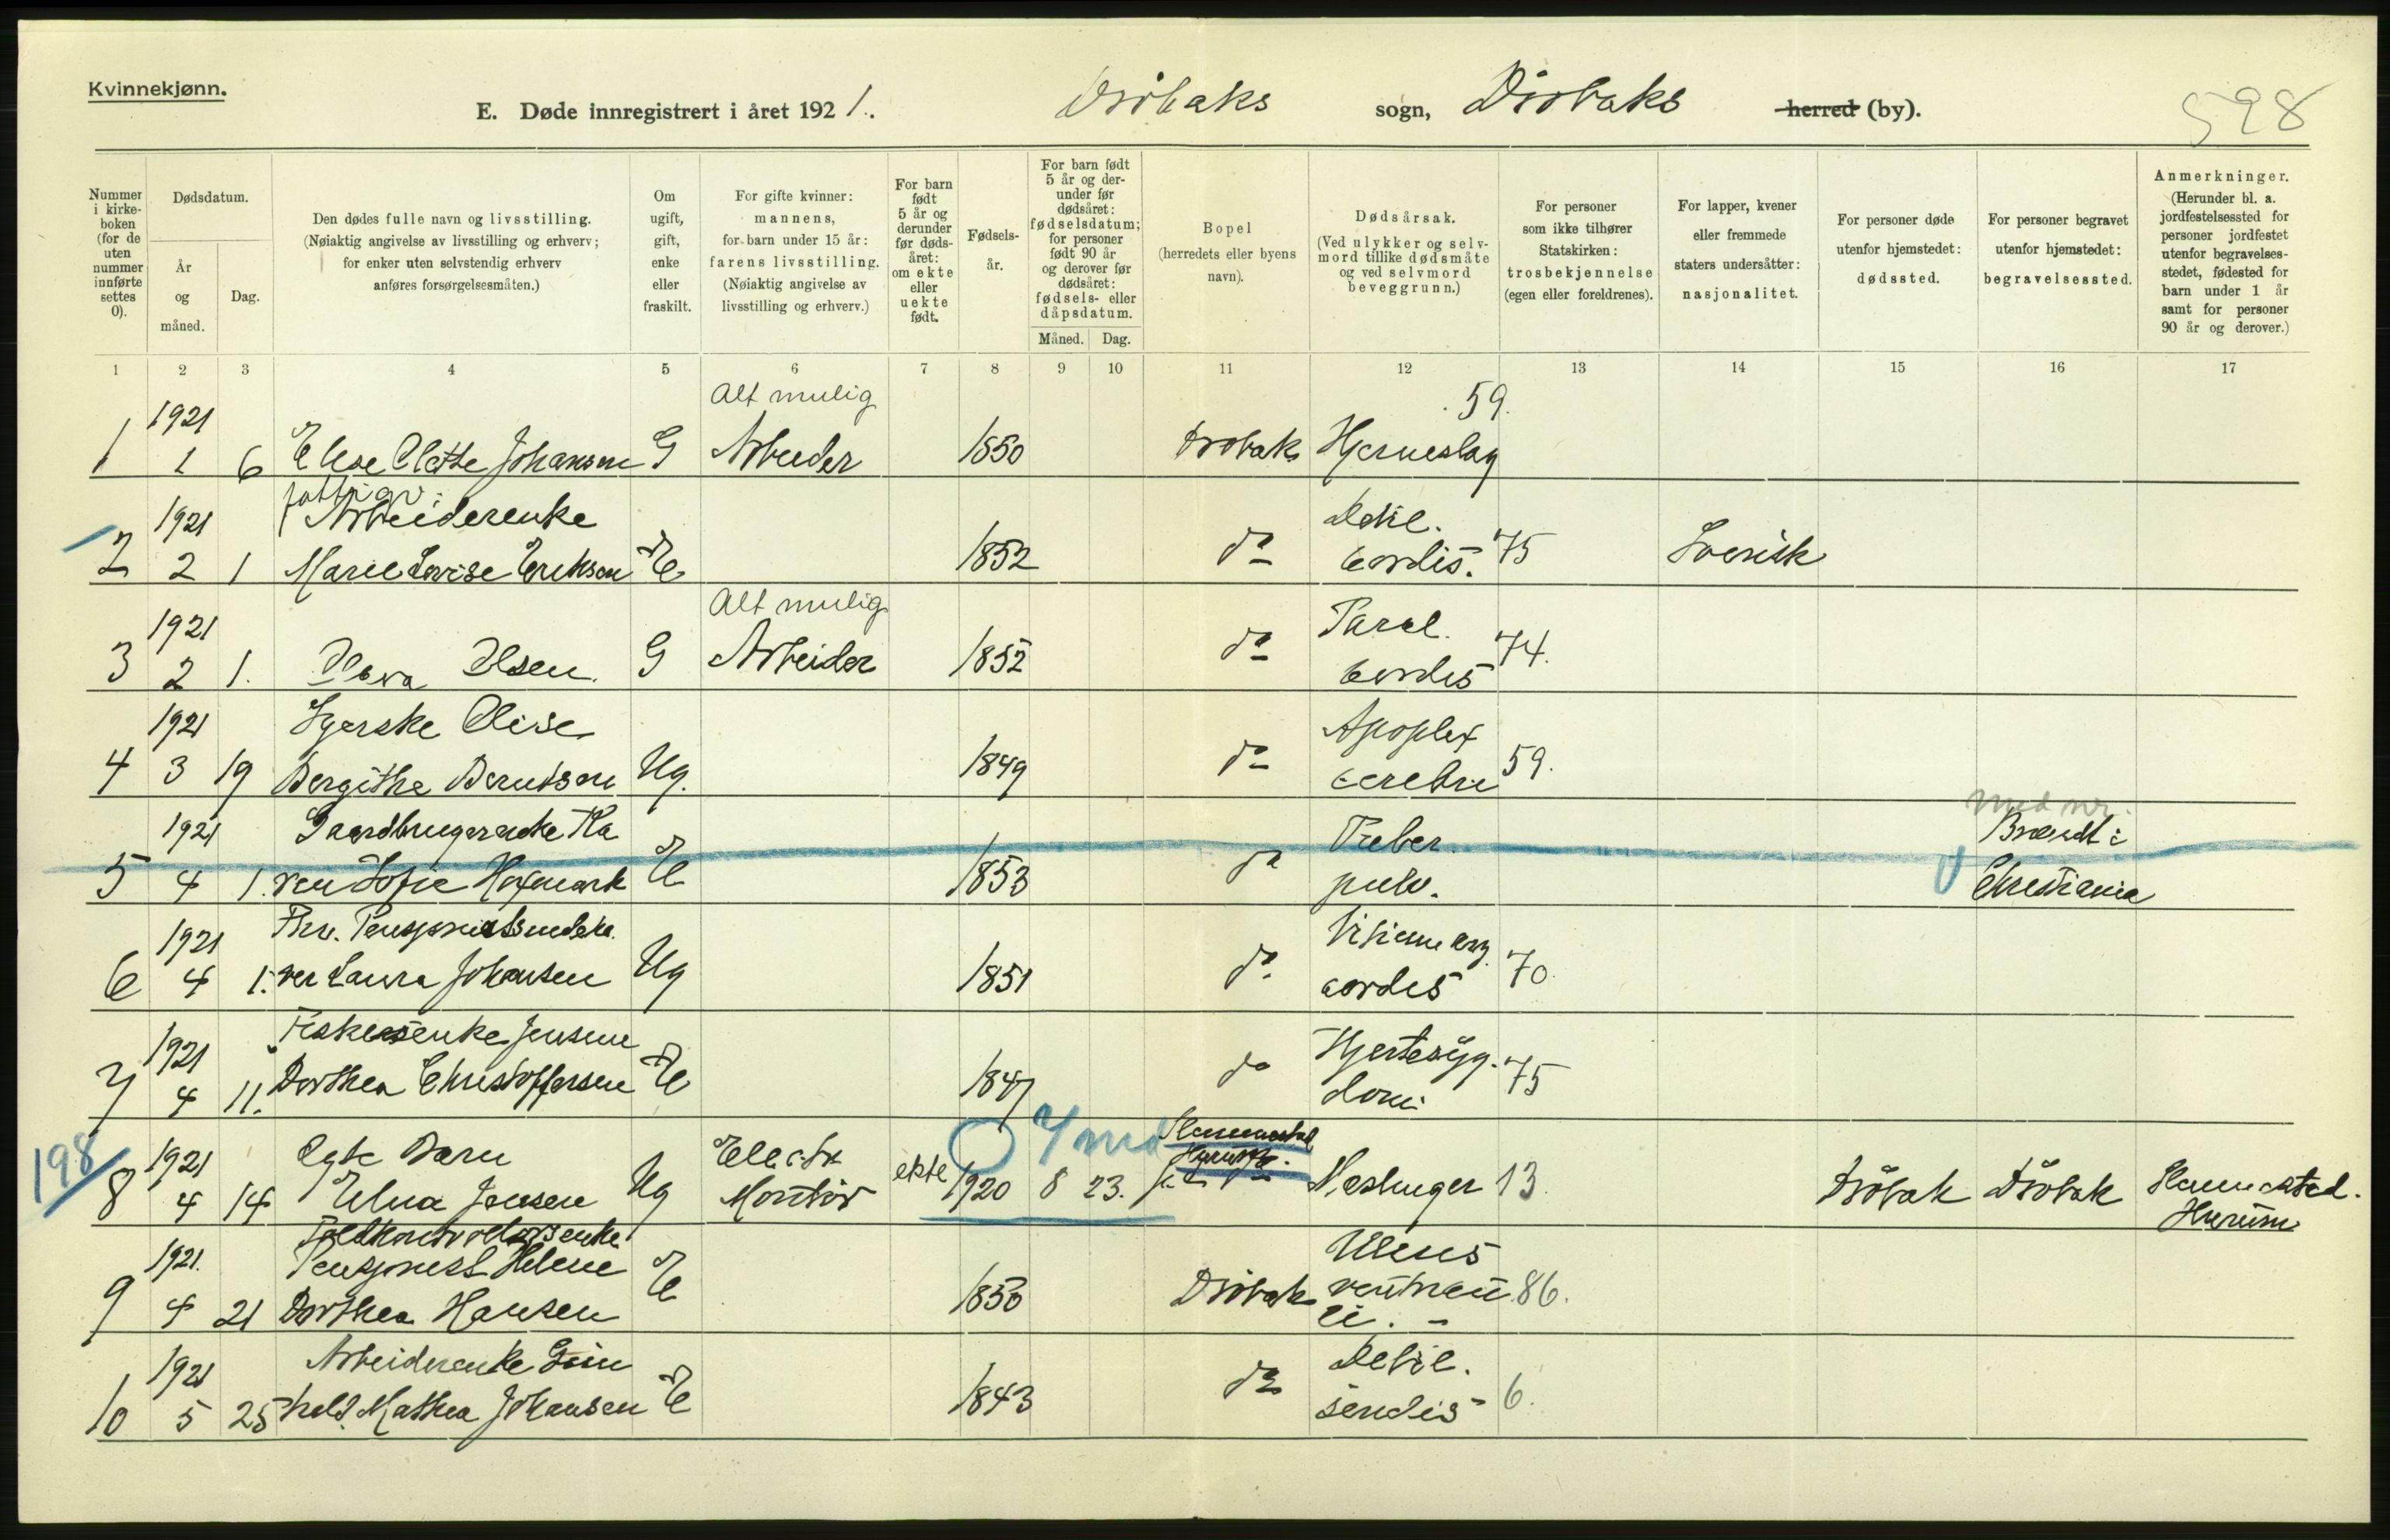 Kvinnekjønn.
E. Døde innregistrert i året 1921. Drøbaks sogn, Drøbaks herred (by).
598
Nummer i kirkeboken (for de uten nummer innførte settes 0).
Dødsdatum.
År og måned.
Dag.
Den dødes fulle navn og livsstilling. (Nøiaktig angivelse av livsstilling og erhverv; for enker uten selvstendig erhverv anføres forsørgelsesmåten.)
Om ugift, gift, enke eller fraskilt.
For gifte kvinner: mannens, for barn under 15 år: farens livsstilling. (Nøiaktig angivelse av livsstilling og erhverv.)
For barn født 5 år og derunder før dødsåret: om ekte eller uekte født.
Fødselsår.
For barn født 5 år og derunder før dødsåret: fødselsdatum; for personer født 90 år og derover før dødsåret: fødsels- eller dåpsdatum.
Måned. Dag.
Bopel (herredets eller byens navn).
Dødsårsak. (Ved ulykker og selvmord tillike dødsmåte og ved selvmord beveggrunn.)
For personer som ikke tilhører Statskirken: trosbekjennelse (egen eller foreldrenes).
For lapper, kvener eller fremmede staters undersåtter: nasjonalitet.
For personer døde utenfor hjemstedet: dødssted.
For personer begravet utenfor hjemstedet: begravelsessted.
Anmerkninger. (Herunder bl. a. jordfestelsessted for personer jordfestet utenfor begravelsesstedet, fødested for barn under 1 år samt for personer 90 år og derover.)
1 2 3 4 5 6 7 8 9 10 11 12 13 14 15 16 17
1921 Alt mulig 59.
1 1 6 Elise Olette Johansen G Arbeider 1850 Drøbak Hjerneslag
1921 fattigv. Arbeiderenke Debil.
2 2 1 Marie Lovise Eriksen E 1852 do cordis. 75 Svensk
1921 Alt mulig Paral.
3 2 1. Olava Olsen. G Arbeider 1852 do cordis 74.
1921 Syerske Elise Apoplex
4 3 19 Bergithe Berntsen Ug. 1849 do cerebri 59.
1921 Gaardbrugerenke Ka Tuber. med nr. Brændt i
5 4 1. ren Sofie E 1853 do pulm. Christiania
1921 Fhv. Pensjonatsindeha
6 4 1. ver Laura Johansen Ug 1851 do cordis 70.
1921 Fiskersenke Jensine Hjertesyg.
7 4 11. Dorthea Christoffersen E 1847 do dom 75
198 1921 Egte Barn Electr. 7 md Slemmestad Hurum.
8 4 14 Elna Jensen Ug Montør ekte 1920 8 23. Mæslinger 13. Drøbak Drøbak Slemmestad. Hurum
1921. Toldkontrollørsenke Ulcus
Pensjonist Helene
9 4 21 Dorthea Hansen E 1850 Drøbak ventricu 86.
li. -
1921 Arbeiderenke Gun Debil.
10 5 25 hild. Mathea Johansen E 1843 do senilis 6.